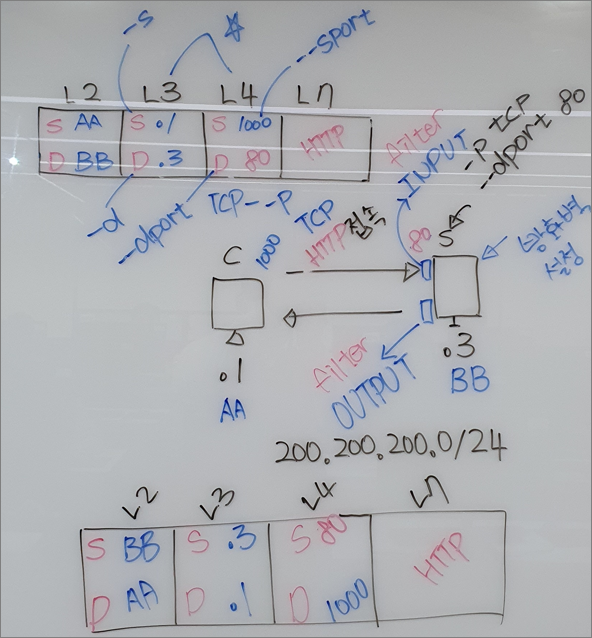 -s
--sport
L2 L3 L4 L7
S AA S .1 S 1000 HTTP
D BB D .3 D 80
filter
INPUT
-p tcp
--dport 80
-d
--dport
TCP--p
TCP
HTTP 접속
C 1000 80 S
방화벽
설정
.1
AA
.3
BB
filter
OUTPUT
200.200.200.0/24
L2 L3 L4 L7
S BB S .3 S 80 HTTP
D AA D .1 D 1000